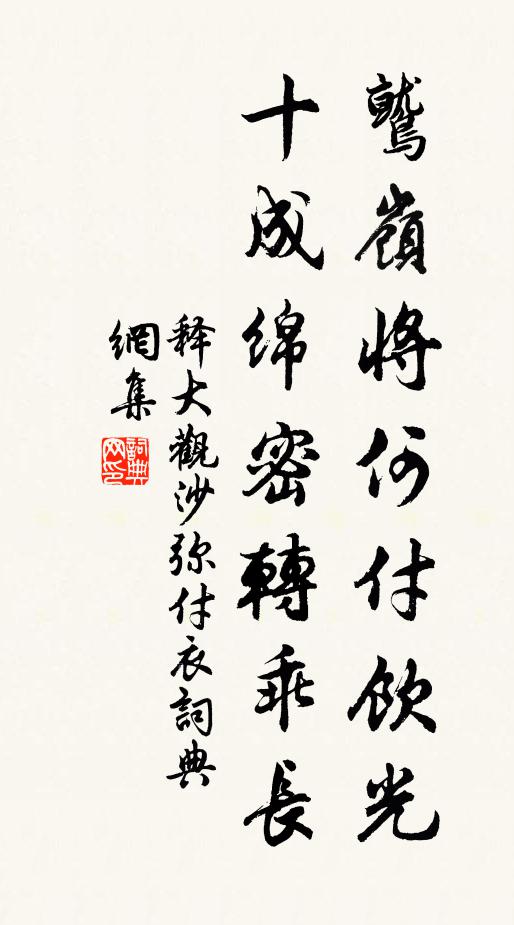 鷲嶺將何付飲光
十成绵密轉乖長
释大觀沙弥付衣詞典
網集
詞典
网印